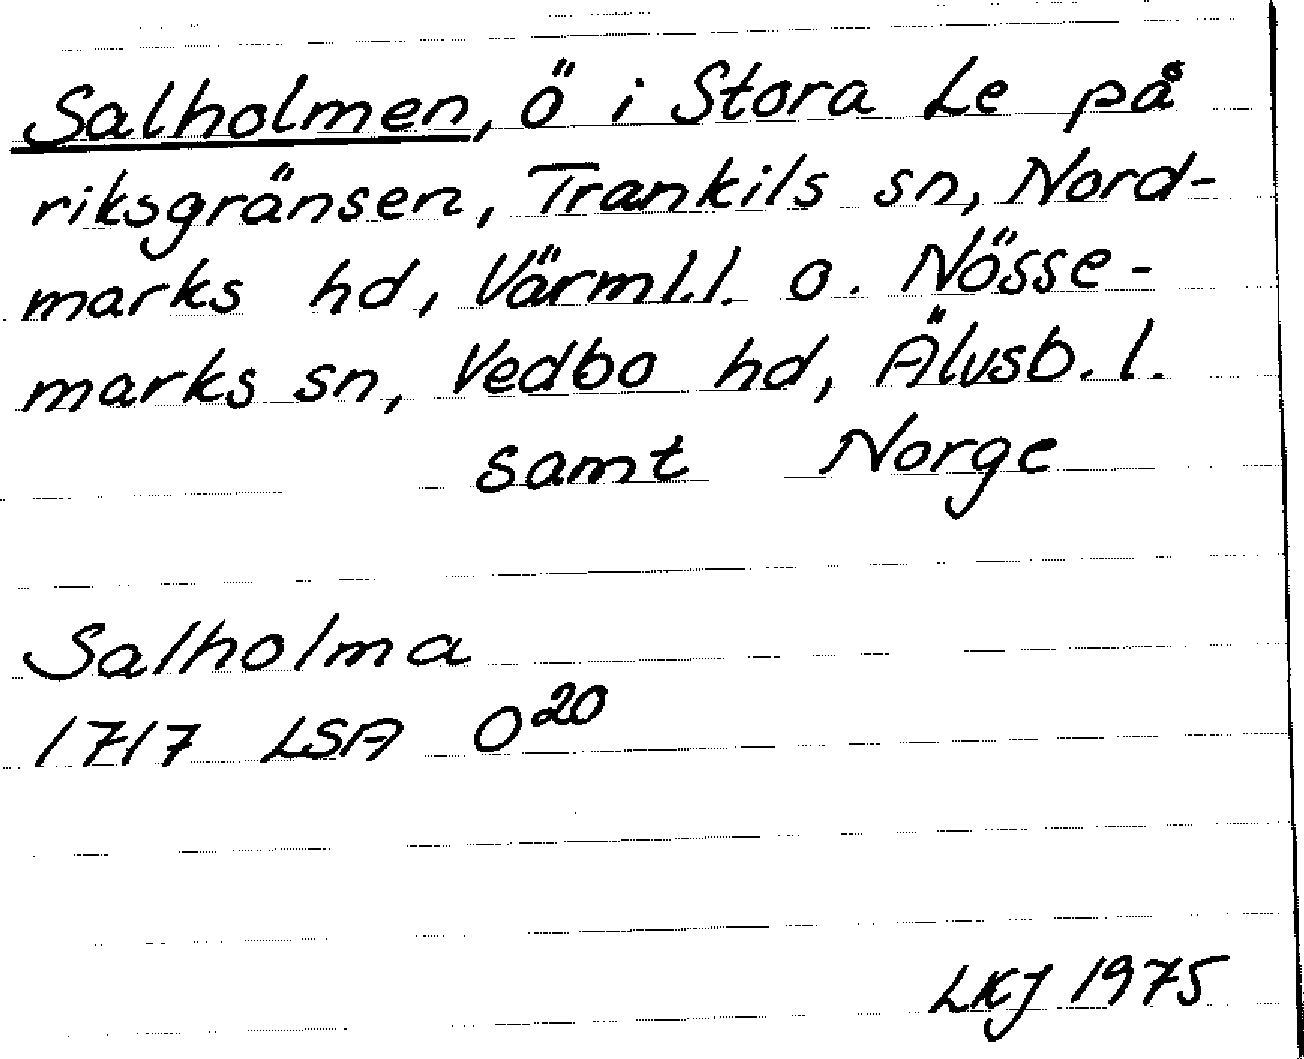 Salholmen, ö i Stora Le på
riksgränsen, Trankils sn, Nord-
marks hd, Värml.l. o. Nösse-
marks sn, Vedbo hd, Älvsb. l.
samt Norge
Salholma
1717 LSA O²⁰
LKJ 1975